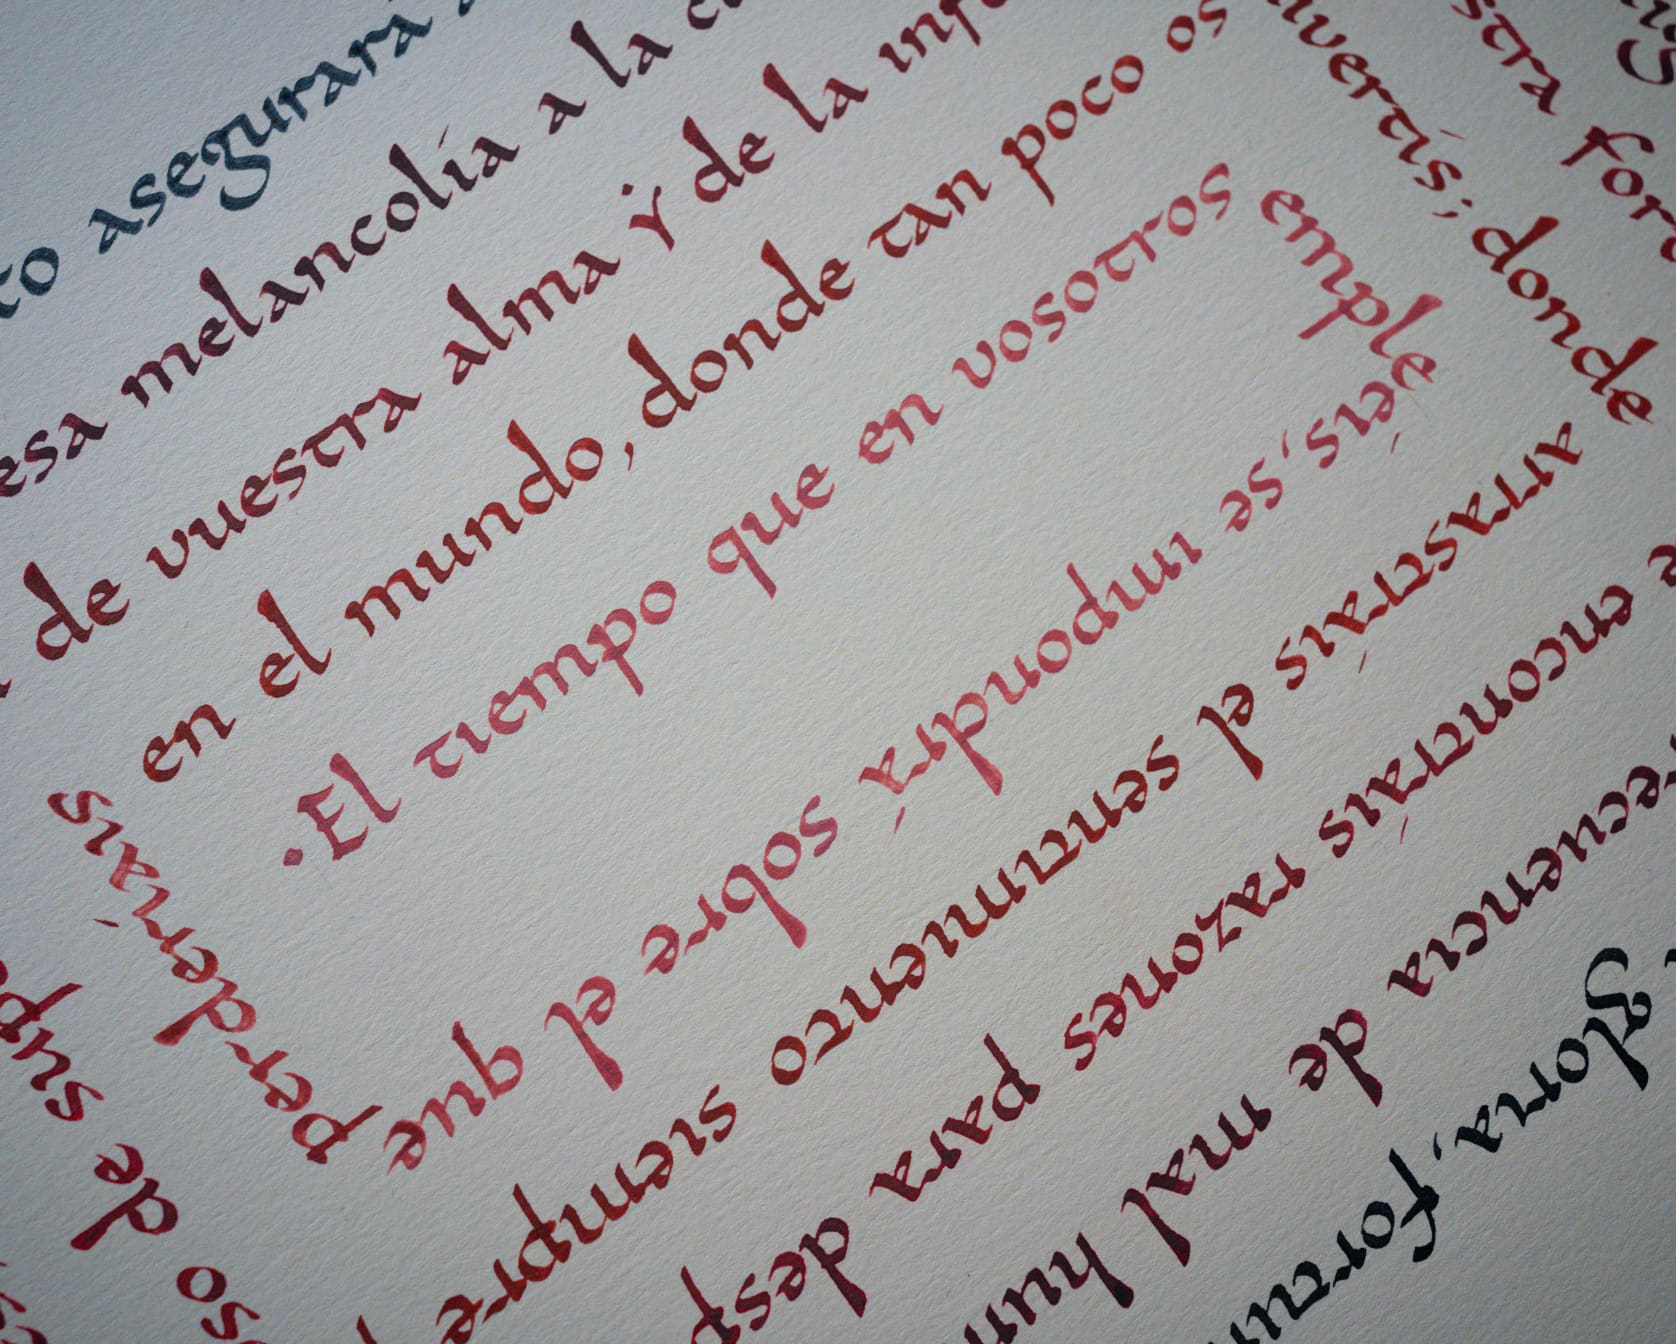 ·El tiempo que en vosotros
emple
éis, se impondrá sobre el que
perderíais
en el mundo, donde tan poco os
divertís; donde
arrastráis el sentimiento siempre
so de sup
de vuestra alma ẏ de la inf
stra for
encontráis razones para desp
esa melancolía a la c
ecuencia de mal hum
to asegurará
gloria, fortun